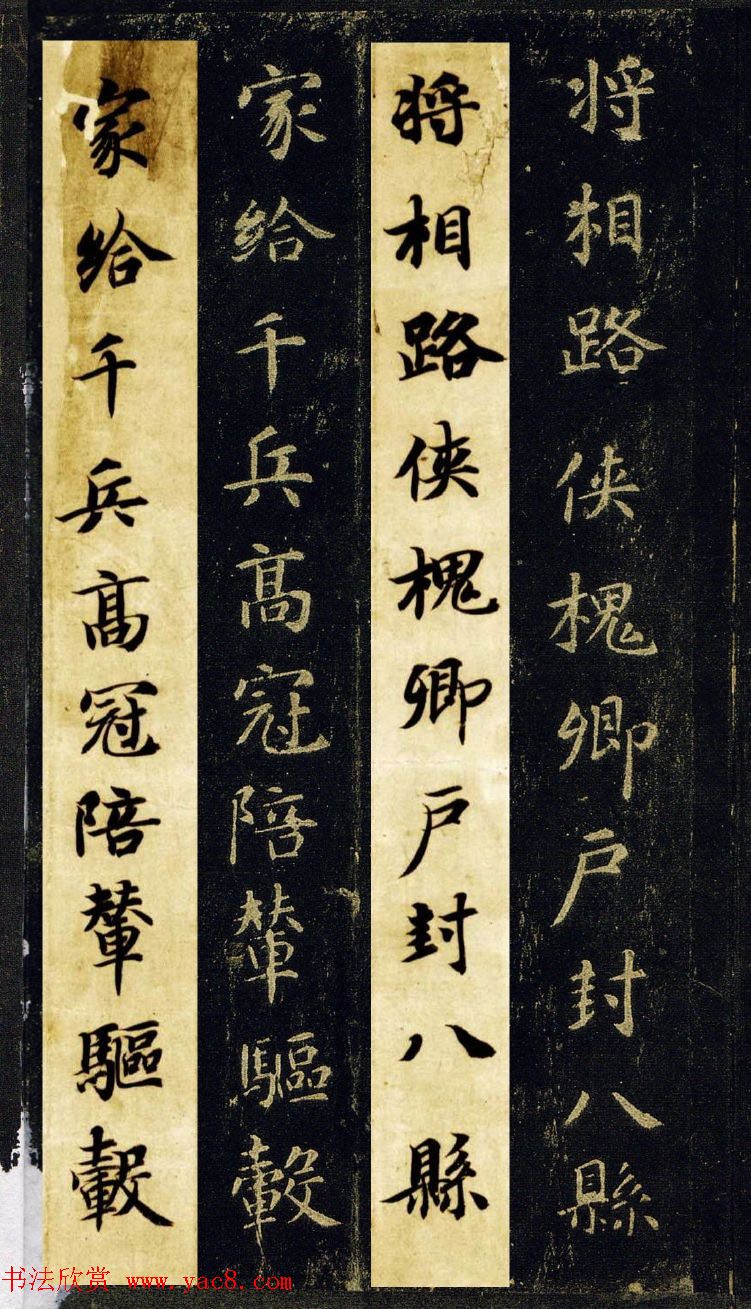 将相路侠槐卿户封八縣
将相路侠槐卿户封八縣
家给千兵高冠陪輦驅轂
家给千兵高冠陪輦驅轂
书法欣赏 www.yac8.com